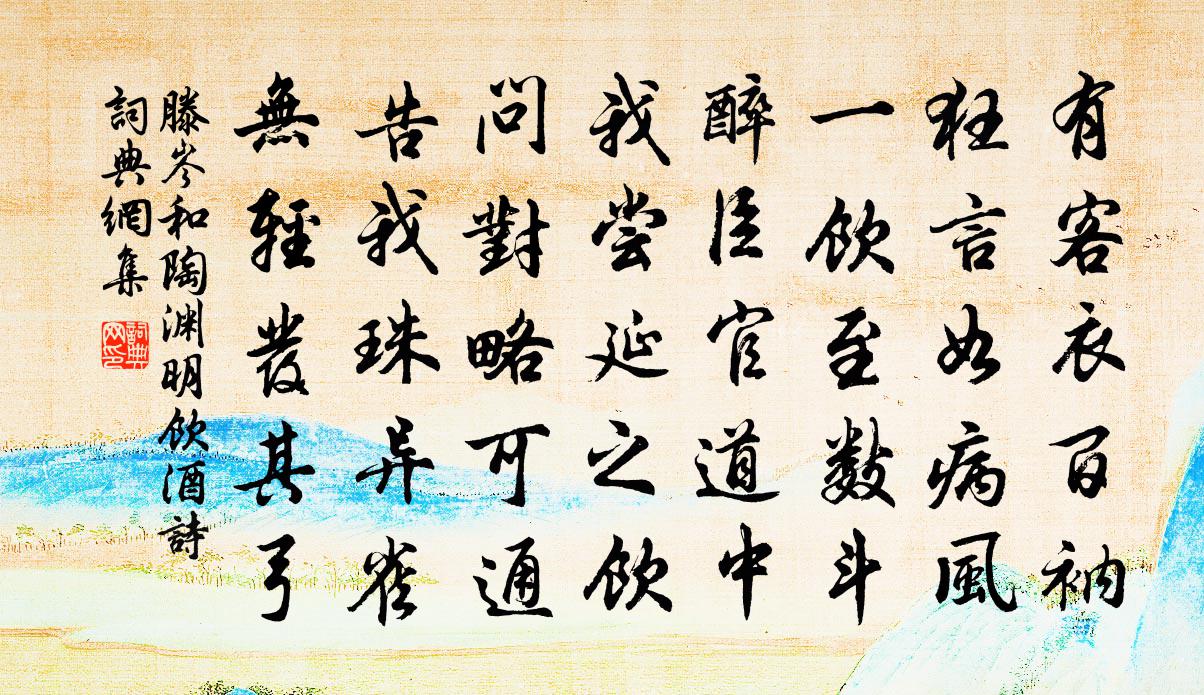 有客衣百衲
狂言如病風
一飲至數斗
醉臣官道中
我嘗延之飲
問對略可通
告我珠异雀
無輕發其弓
滕岑和陶渊明飲酒詩
詞典網集
詞典网印